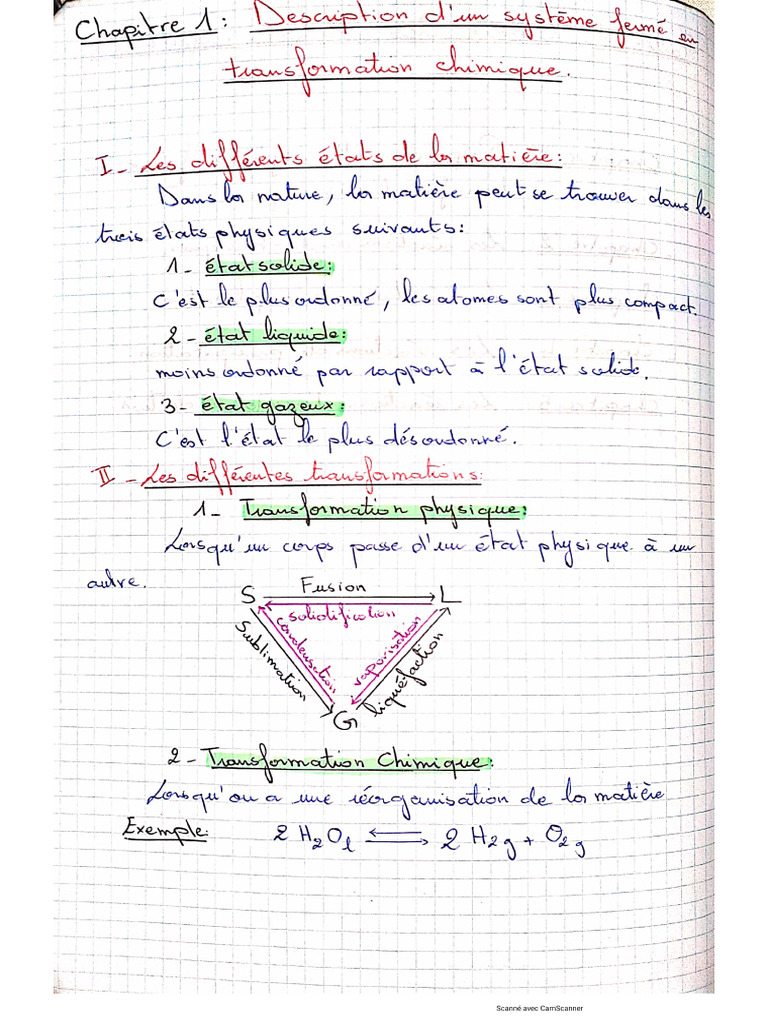 Chapitre 1 : Description d'un système fermé en
transformation chimique.
I - Les différents états de la matière :
Dans la nature, la matière peut se trouver dans les
trois états physiques suivants :
1 - état solide :
C'est le plus ordonné, les atomes sont plus compact.
2 - état liquide :
moins ordonné par rapport à l'état solide.
3 - état gazeux :
C'est l'état le plus désordonné.
II - Les différentes transformations :
1 - Transformation physique :
Lorsqu'un corps passe d'un état physique à un
autre.
S Fusion L
solidification
Sublimation condensation vaporisation liquéfaction
G
2 - Transformation Chimique :
Lorsqu'on a une réorganisation de la matière
Exemple : 2 H₂Ol ⇌ 2 H₂g + O₂g
Scanné avec CamScanner